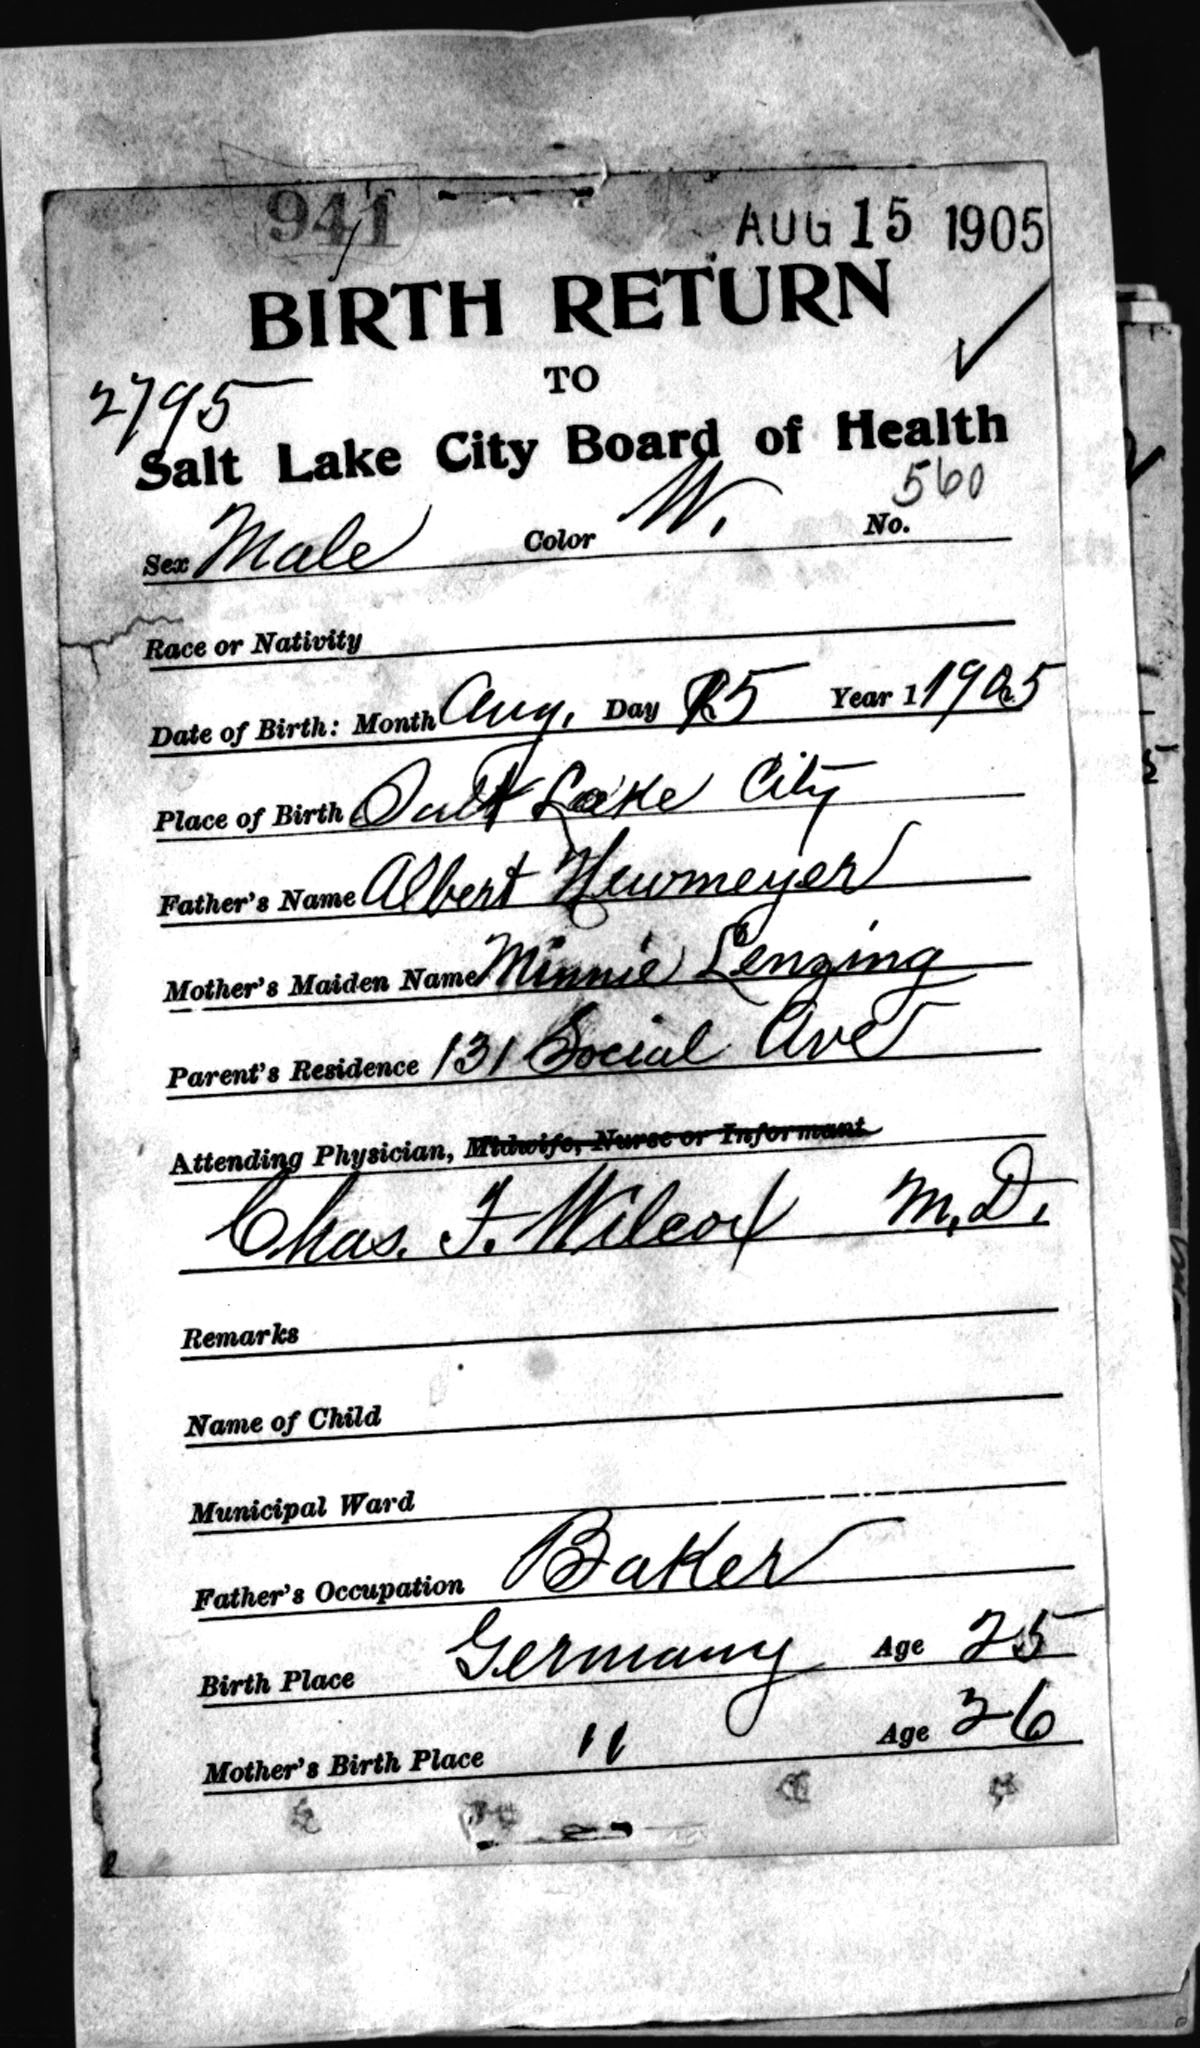 941 AUG 15 1905
BIRTH RETURN
TO
2795
Salt Lake City Board of Health
Sex Male Color W. No. 560
Race or Nativity
Date of Birth: Month Aug. Day 5 Year 1 1905
Place of Birth Salt Lake City
Father's Name Albert Newmeyer
Mother's Maiden Name Minnie Lenzing
Parent's Residence 131 Social Ave
Attending Physician, Midwife, Nurse or Informant
Chas. F. Wilcox M.D.
Remarks
Name of Child
Municipal Ward
Father's Occupation Baker
Birth Place Germany Age 25
Mother's Birth Place " Age 26